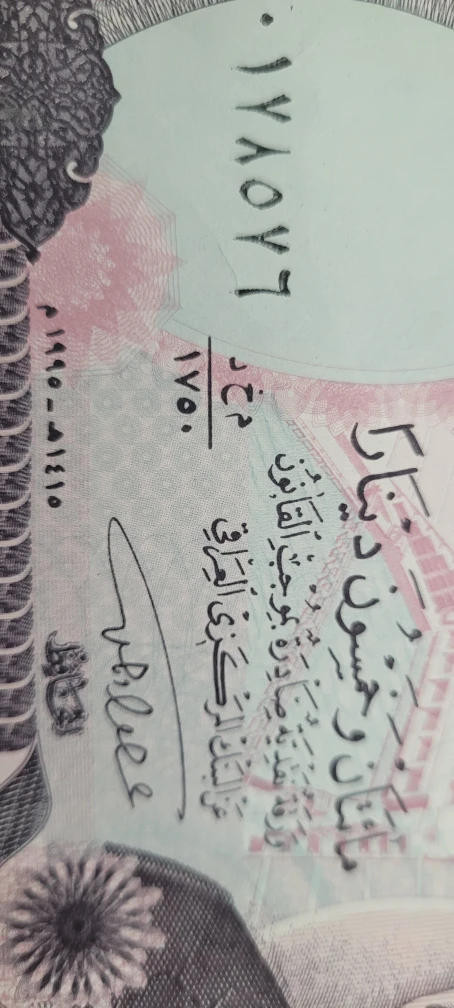 ٠١٧٨٥٧٦
١٧٥٠
مائتان وخمسون دينارًا
ورقة نقدية صادرة بموجب القانون
عن البنك المركزي العراقي
المحافظ
١٤١٥هـ - ١٩٩٥م